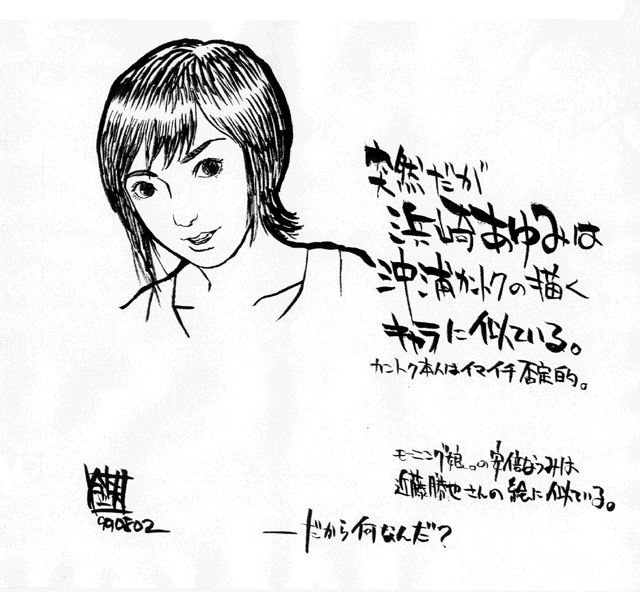 突然だが
浜崎あゆみは
沖浦カントクの描く
キャラに似ている。
カントク本人はイマイチ否定的。
モーニング娘。の安倍なつみは
近藤勝也さんの絵に似ている。
―だから何なんだ?
990802